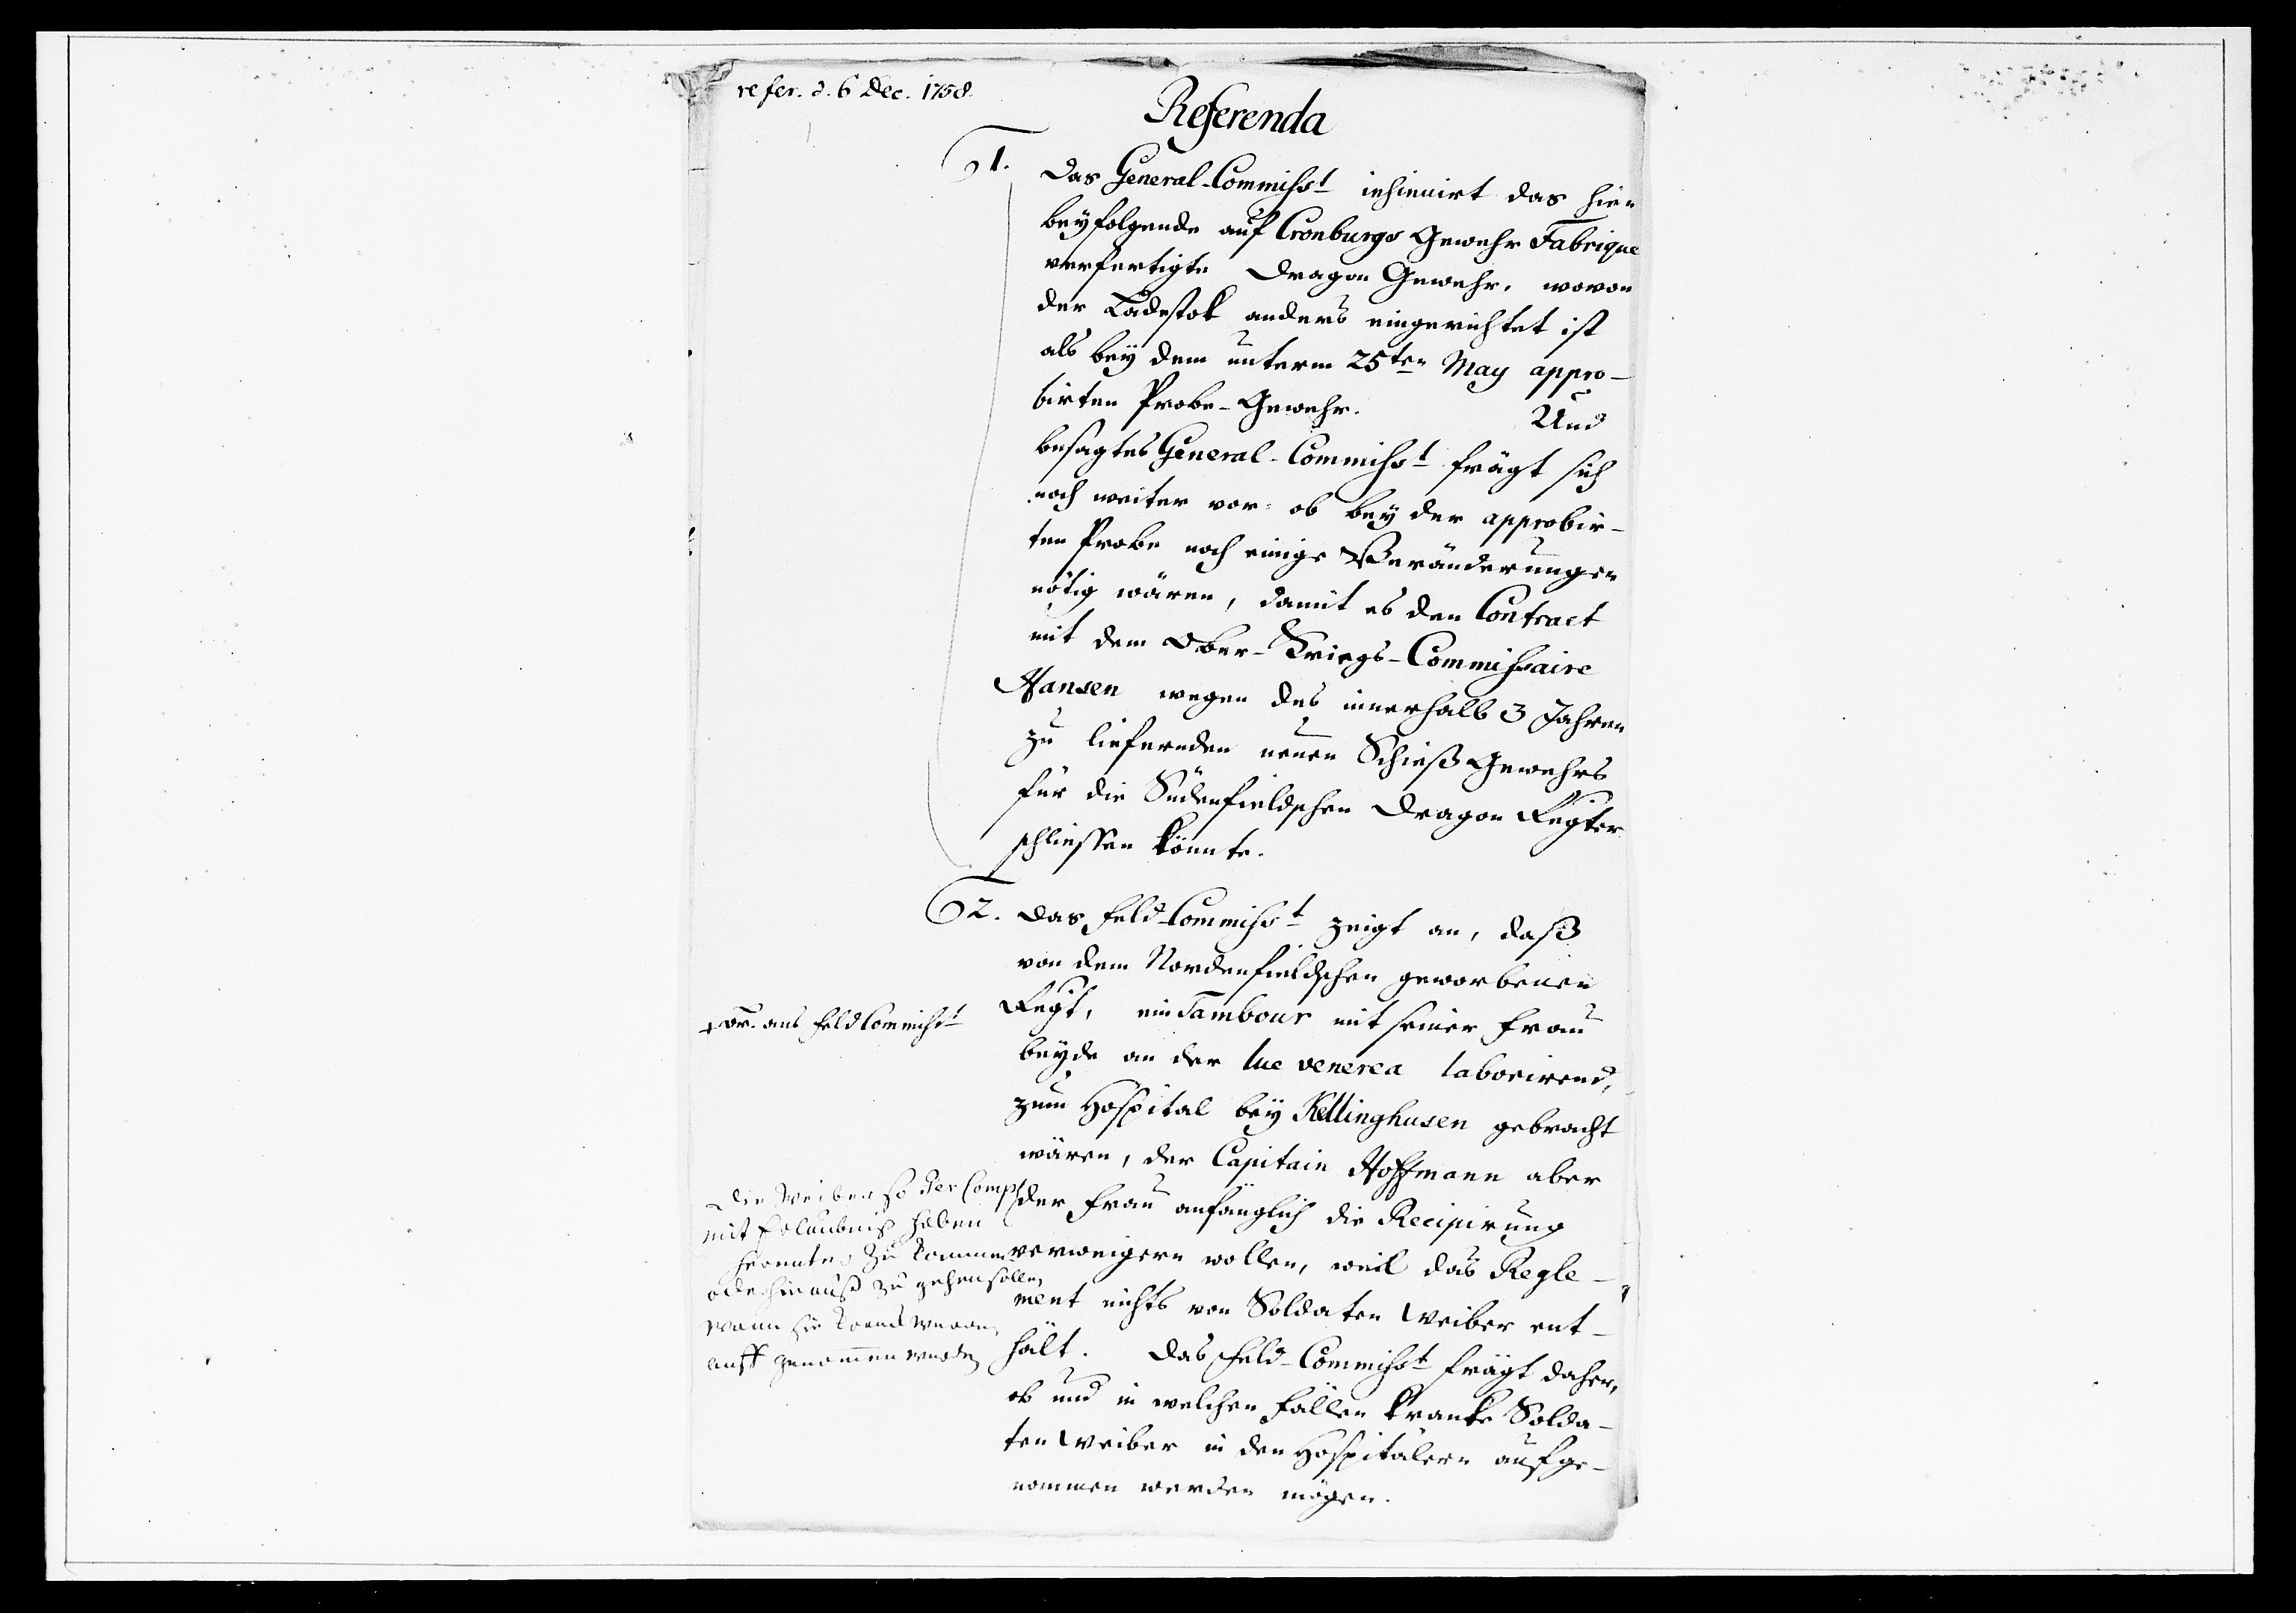 refer. d. 6 Dec. 1758.
Referenda
1. Das General-Commisst inhinirt das hier
beyfolgende auf Cronburgs Gewehr Fabrique
verfertigte Dragon Gewehr, wovon
der Ladestok anders eingerichtet ist
als bey dem unterm 25ten May appro-
birten Probe-Gewehr. Und
besagtes General-Commisst frägt sich
noch weiter vor: ob bey der approbir-
ten Probe noch einige Veränderungen
nötig wären, damit es den Contract
mit dem Ober-Kriegs-Commissaire
Hansen wegen des innerhalb 3 Jahren
zu liefernden neuen Schieß Gewehrs
für die Südenfieldschen Dragon Regter
schliessen könnte.
2. Das Feld-Commisst zeigt an, daß
von dem Nordenfieldschen geworbenen
Regt, ein Tambour mit seiner Frau
beyde an der lue venerea laborirend,
zum Hospital bey Kellinghusen gebracht
wären, der Capitain Hoffmann aber
der Frau anfänglich die Recipirung
verweigern wollen, weil das Regle-
ment nichts von Soldaten Weiber ent-
hält. Das Feld-Commisst frägt daher,
ob und in welchen Fällen kranke Solda-
ten Weiber in den Hospitälern aufge-
nommen werden mögen.
ans Feld Commisst
Die Weiber so der Comp
mit Erlaubniß haben
herunter zu kommen
oder hinauß zu gehen sollen
wann sie kranck werden
auff genommen werden